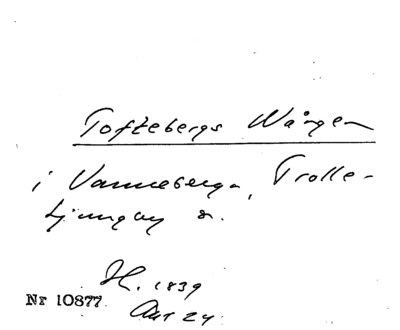 Toftebergs Wången
i Vanneberga, Trolle-
Ljungby s.
H. 1839
Nr 10877.
Akt 24